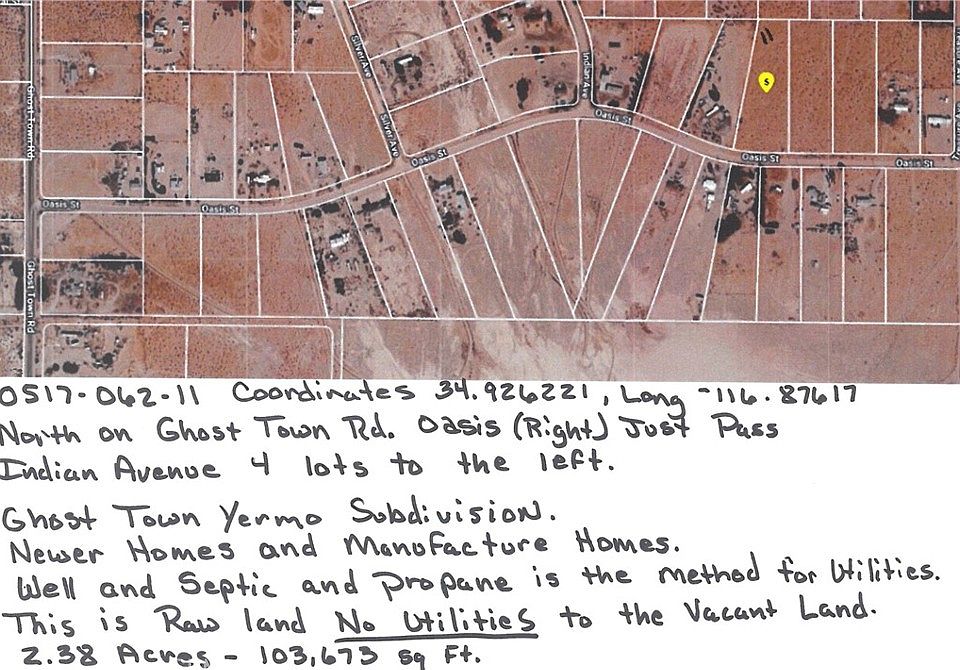 Silver Ave
Indian Ave
Ghost Town Rd
Silver Ave
Oasis St
Oasis St
Oasis St
Oasis St
Oasis St
Oasis St
Ghost Town Rd
$
0517-062-11 Coordinates 34.926221, Long -116.87617
North on Ghost Town Rd. Oasis (Right) Just Pass
Indian Avenue 4 lots to the left.
Ghost Town Yermo Subdivision.
Newer Homes and Manufacture Homes.
Well and Septic and propane is the method for Utilities.
This is Raw land No Utilities to the Vacant Land.
2.38 Acres - 103,673 sq Ft.